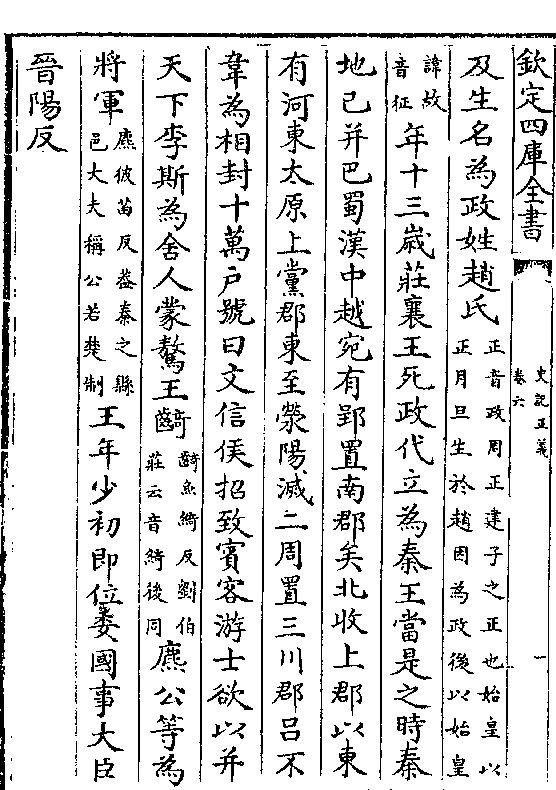 欽定四庫全書
史記正義
卷六
一
及生名為政姓趙氏
正音政周正建子之正也始皇以
正月旦生於趙因為政後以始皇
諱故
音征
年十三歲莊襄王死政代立為秦王當是之時秦
地已并巴蜀漢中越宛有郢置南郡矣北收上郡以東
有河東太原上黨郡東至滎陽滅二周置三川郡吕不
韋為相封十萬户號曰文信侯招致賓客游士欲以并
天下李斯為舍人蒙驁王齮
齮魚綺反劉伯
莊云音綺後同
麃公等為
將軍
麃彼苗反葢秦之縣
邑大夫稱公若楚制
王年少初即位委國事大臣
晉陽反